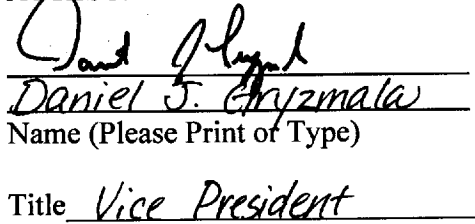 Daniel J. Gryzmala
Name (Please Print or Type)
Title Vice President